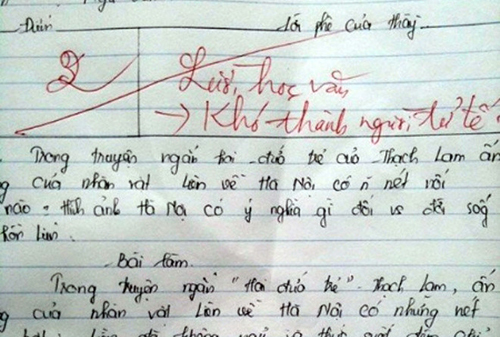 Điểm Lời phê của thầy
2 Lười học văn
→ Khó thành người tử tế
Trong truyện ngắn hai đứa trẻ của Thạch Lam ấn
g của nhân vật Liên về Hà Nội có n nét nổi
nào. Hình ảnh Hà Nội có ý nghĩa gì đối vs đời sống
hồn Liên.
Bài làm
Trong truyện ngắn "Hai đứa trẻ". Thạch Lam, ấn
g của nhân vật Liên về Hà Nội có những nét